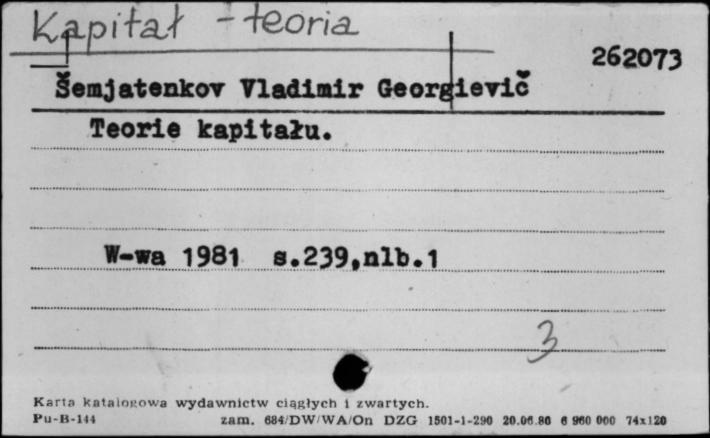 Kapitał - teoria
262073
Šemjatenkov Vladimir Georgievič
Teorie kapitału.
W-wa 1981 s.239,nlb.1
3
Karta katalogowa wydawnictw ciągłych i zwartych.
Pu-B-144 zam. 684/DW/WA/On DZG 1501-1-290 20.06.80 6 960 000 74x120